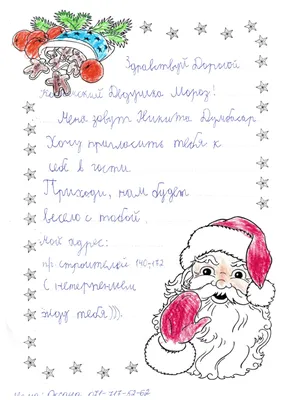 Здравствуй Дорогой
Дедушка Мороз!
Меня зовут Никита Думбасар
Хочу пригласить тебя к
себе в гости
Приходи, нам будет
весело с тобой.
мой адрес:
пр. строителей 140-172
С нетерпением
жду тебя))).